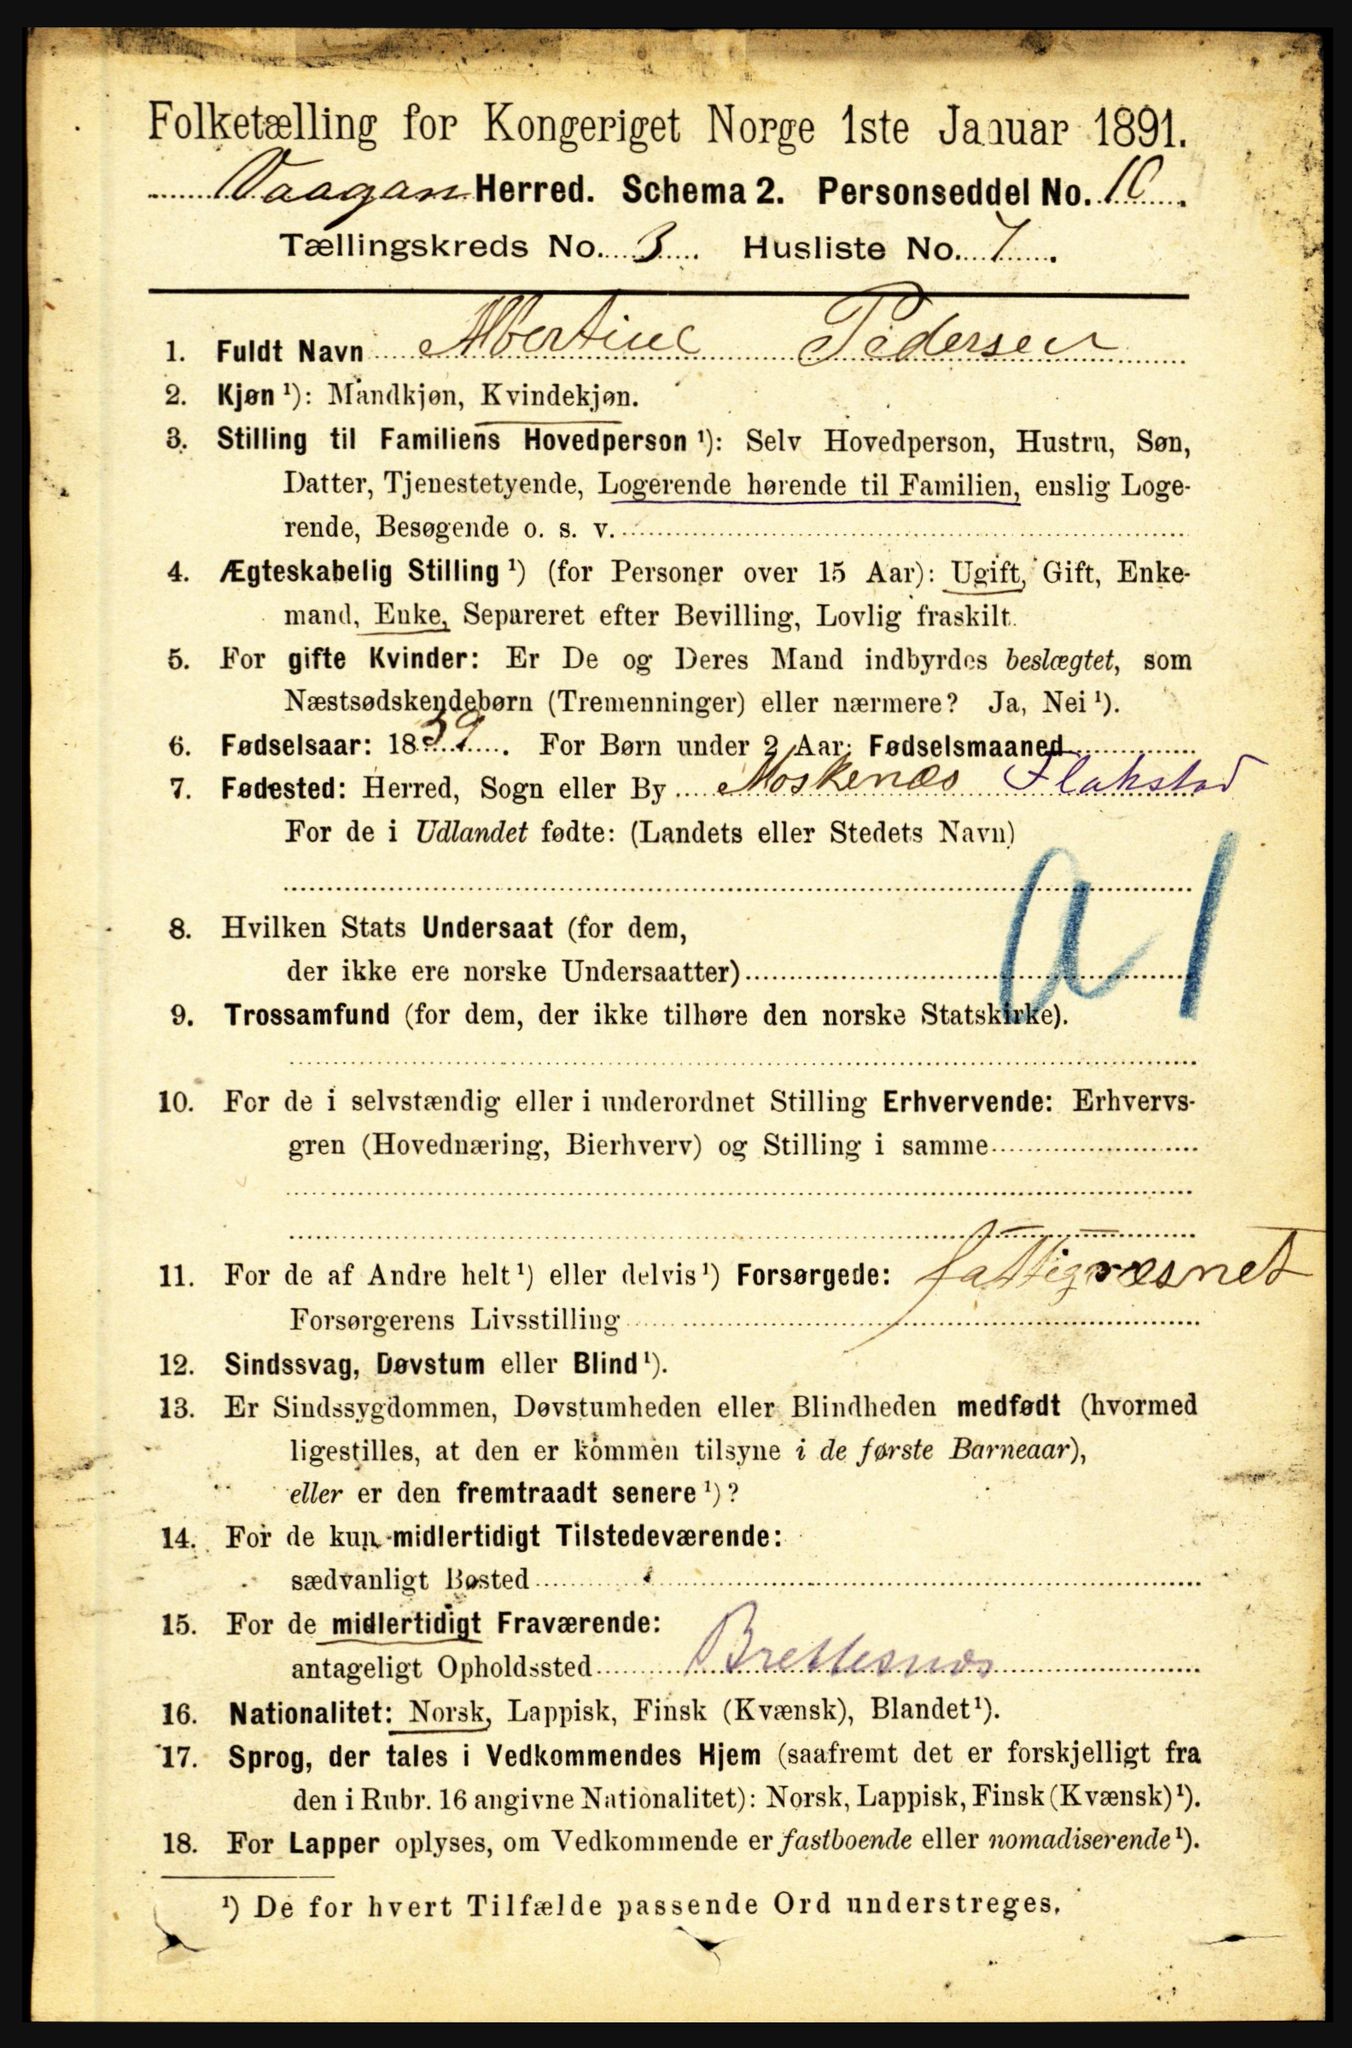 Folketælling for Kongeriget Norge 1ste Januar 1891.
Vaagan Herred. Schema 2. Personseddel No. 10.
Tællingskreds No. 3. Husliste No. 7.
1. Fuldt Navn Albertine Pedersen
2. Kjøn ¹): Mandkjøn, Kvindekjøn.
3. Stilling til Familiens Hovedperson ¹): Selv Hovedperson, Hustru, Søn,
Datter, Tjenestetyende, Logerende hørende til Familien, enslig Loge-
rende, Besøgende o. s. v.
4. Ægteskabelig Stilling ¹) (for Personer over 15 Aar): Ugift, Gift, Enke-
mand, Enke, Separeret efter Bevilling, Lovlig fraskilt.
5. For gifte Kvinder: Er De og Deres Mand indbyrdes beslægtet, som
Næstsødskendebørn (Tremenninger) eller nærmere? Ja, Nei ¹).
6. Fødselsaar: 1839. For Børn under 2 Aar: Fødselsmaaned
7. Fødested: Herred, Sogn eller By Moskenæs Flakstad
For de i Udlandet fødte: (Landets eller Stedets Navn)
a 1
8. Hvilken Stats Undersaat (for dem,
der ikke ere norske Undersaatter)
9. Trossamfund (for dem, der ikke tilhøre den norske Statskirke).
10. For de i selvstændig eller i underordnet Stilling Erhvervende: Erhvervs-
gren (Hovednæring, Bierhverv) og Stilling i samme
11. For de af Andre helt ¹) eller delvis ¹) Forsørgede: fattigvæsnet
Forsørgerens Livsstilling
12. Sindssvag, Døvstum eller Blind ¹).
13. Er Sindssygdommen, Døvstumheden eller Blindheden medfødt (hvormed
ligestilles, at den er kommen tilsyne i de første Barneaar),
eller er den fremtraadt senere ¹)?
14. For de kun midlertidigt Tilstedeværende:
sædvanligt Bosted
15. For de midlertidigt Fraværende:
antageligt Opholdssted Brettesnæs
16. Nationalitet: Norsk, Lappisk, Finsk (Kvænsk), Blandet ¹).
17. Sprog, der tales i Vedkommendes Hjem (saafremt det er forskjelligt fra
den i Rubr. 16 angivne Nationalitet): Norsk, Lappisk, Finsk (Kvænsk) ¹).
18. For Lapper oplyses, om Vedkommende er fastboende eller nomadiserende ¹).
¹) De for hvert Tilfælde passende Ord understreges.